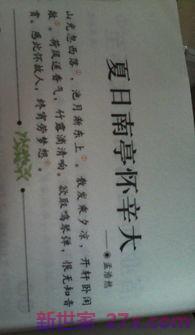 夏日南亭怀辛大
——◉孟浩然
山光忽西落①，池月渐东上②。散发乘夕凉，开轩卧闲
敞③。荷风送香气，竹露滴清响。欲取鸣琴弹，恨无知音
赏。感此怀故人，终宵劳梦想④。